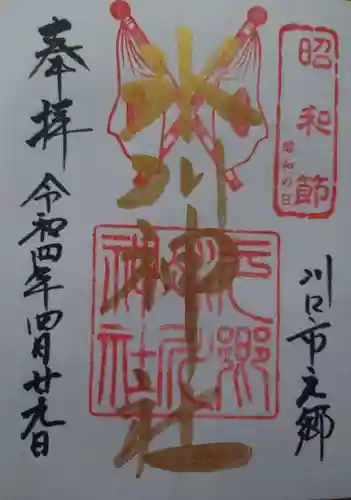 昭和節
昭和の日
川口市元郷
氷川神社
元郷氷川神社
奉拝
令和四年四月廿九日